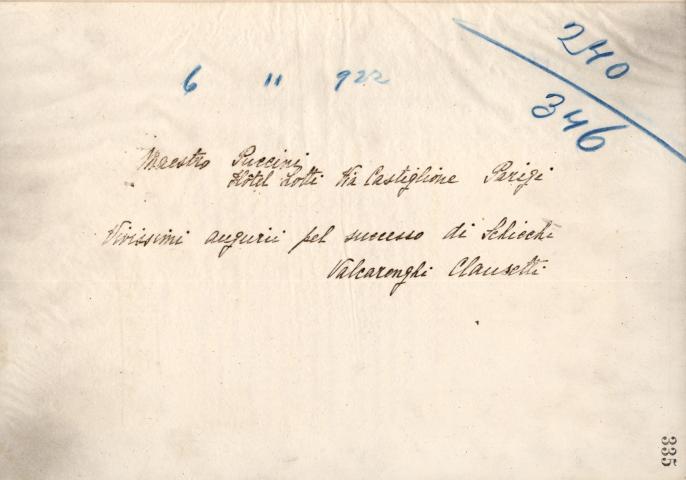 240
346
6 11 922
Maestro Puccini
Hotel Lotti Via Castiglione Parigi
Vivissimi augurii pel successo di Schicchi
Valcarenghi Clausetti
335